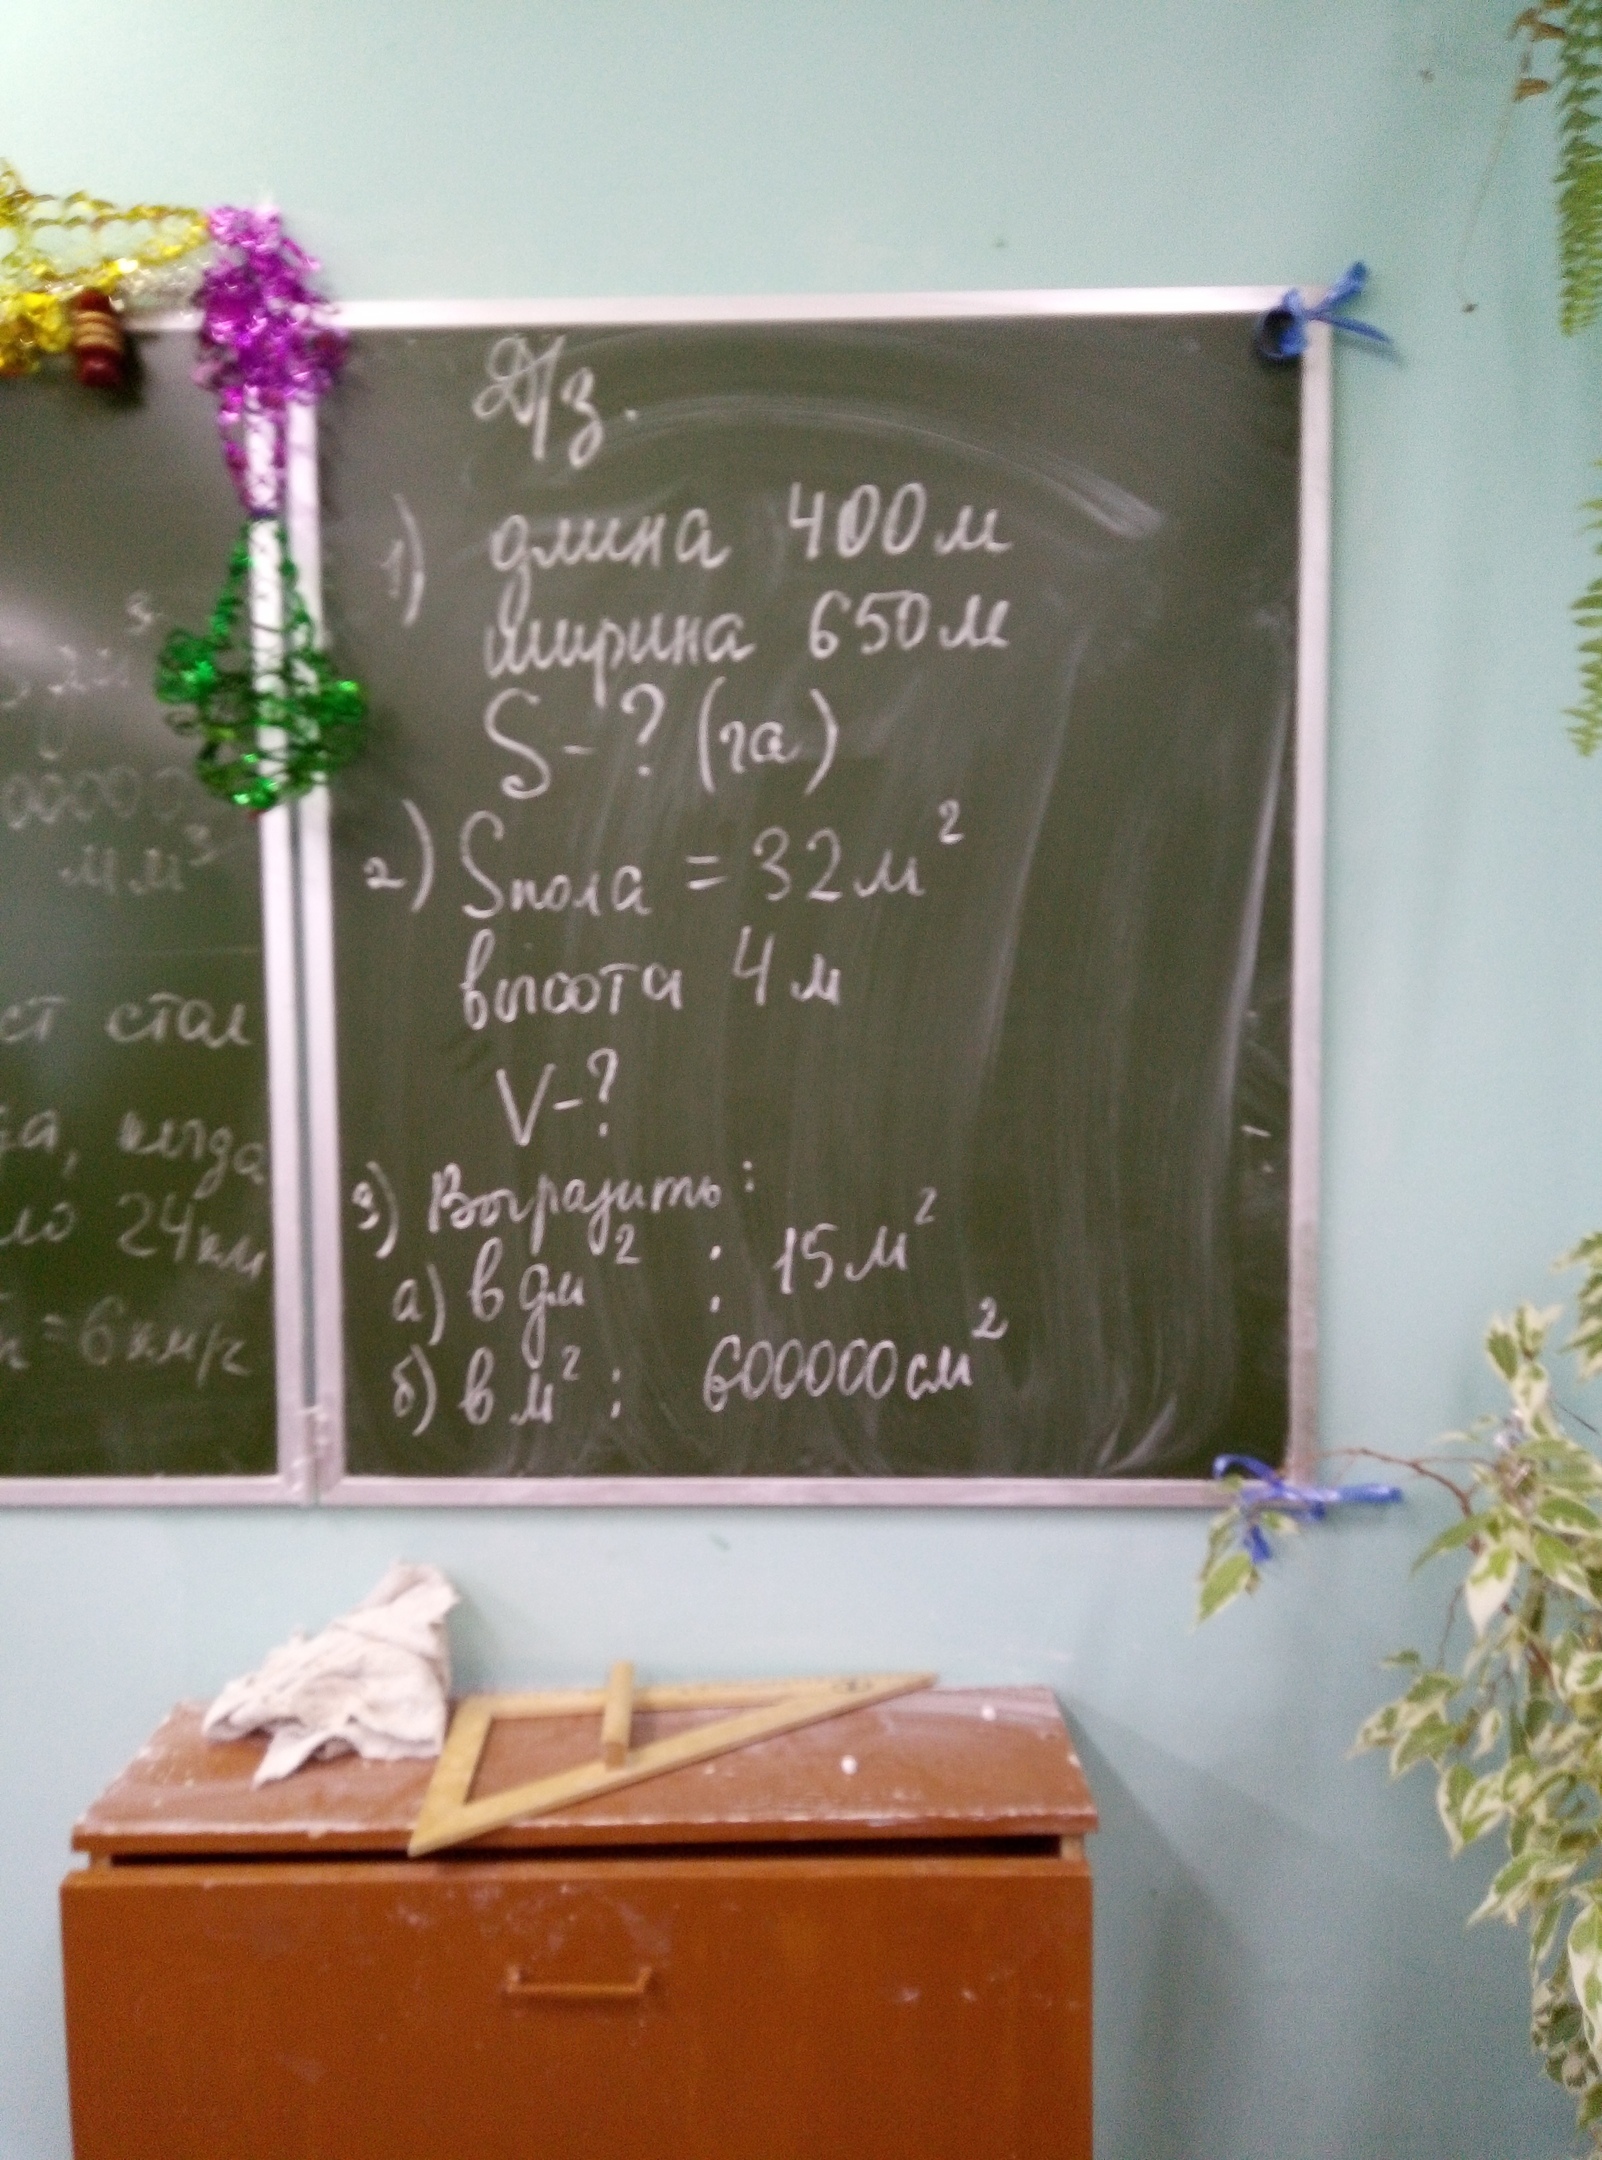 мм³
ст стал
да, когда
ло 24км
= 6 км/ч
Д/з.
1) длина 400 м
ширина 650 м
S - ? (га)
2) Sпола = 32 м²
высота 4 м
V - ?
3) Выразить:
а) в дм² : 15 м²
б) в м² : 600000 см²